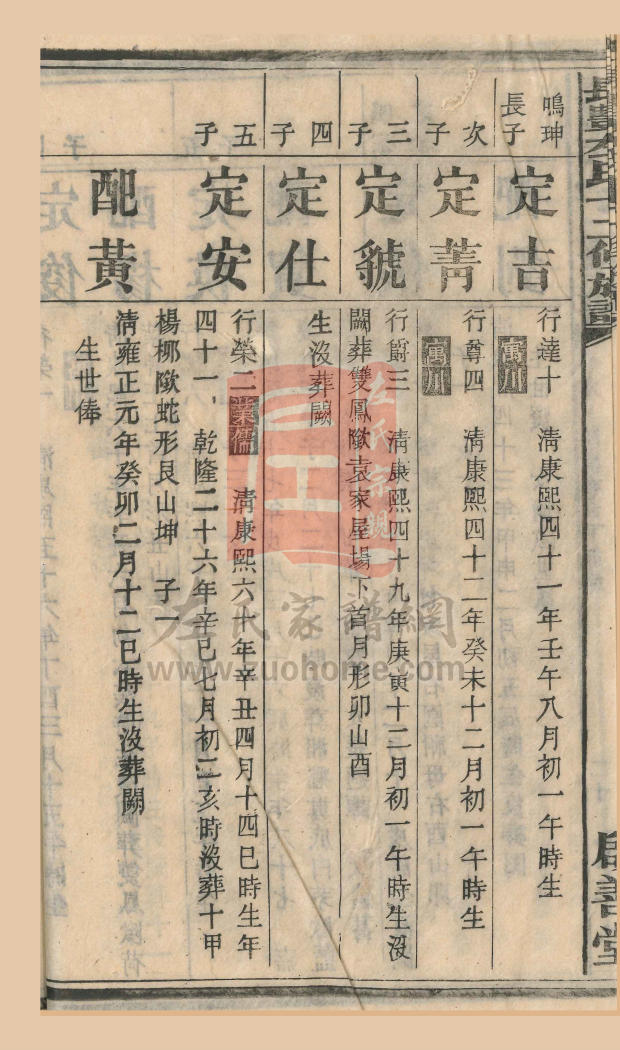 鳴珅
長子
定吉
行達十　清康熙四十一年壬午八月初一午時生
寓川
次子
定菁
行尊四　清康熙四十二年癸未十二月初一午時生
寓川
三子
定虢
行爵三　清康熙四十九年庚寅十二月初一午時生沒
闕葬雙鳳歘袁家屋場下首月形卯山酉
四子
定仕
生沒葬闕
五子
定安
行榮二
業儒
清康熙六十年辛丑四月十四巳時生年
四十一，乾隆二十六年辛巳七月初二亥時沒葬十甲
楊柳歘蛇形艮山坤　子一
配黃
清雍正元年癸卯二月十二巳時生沒葬闕
生世俸
啟善堂
左氏家譜網
www.zuohome.com